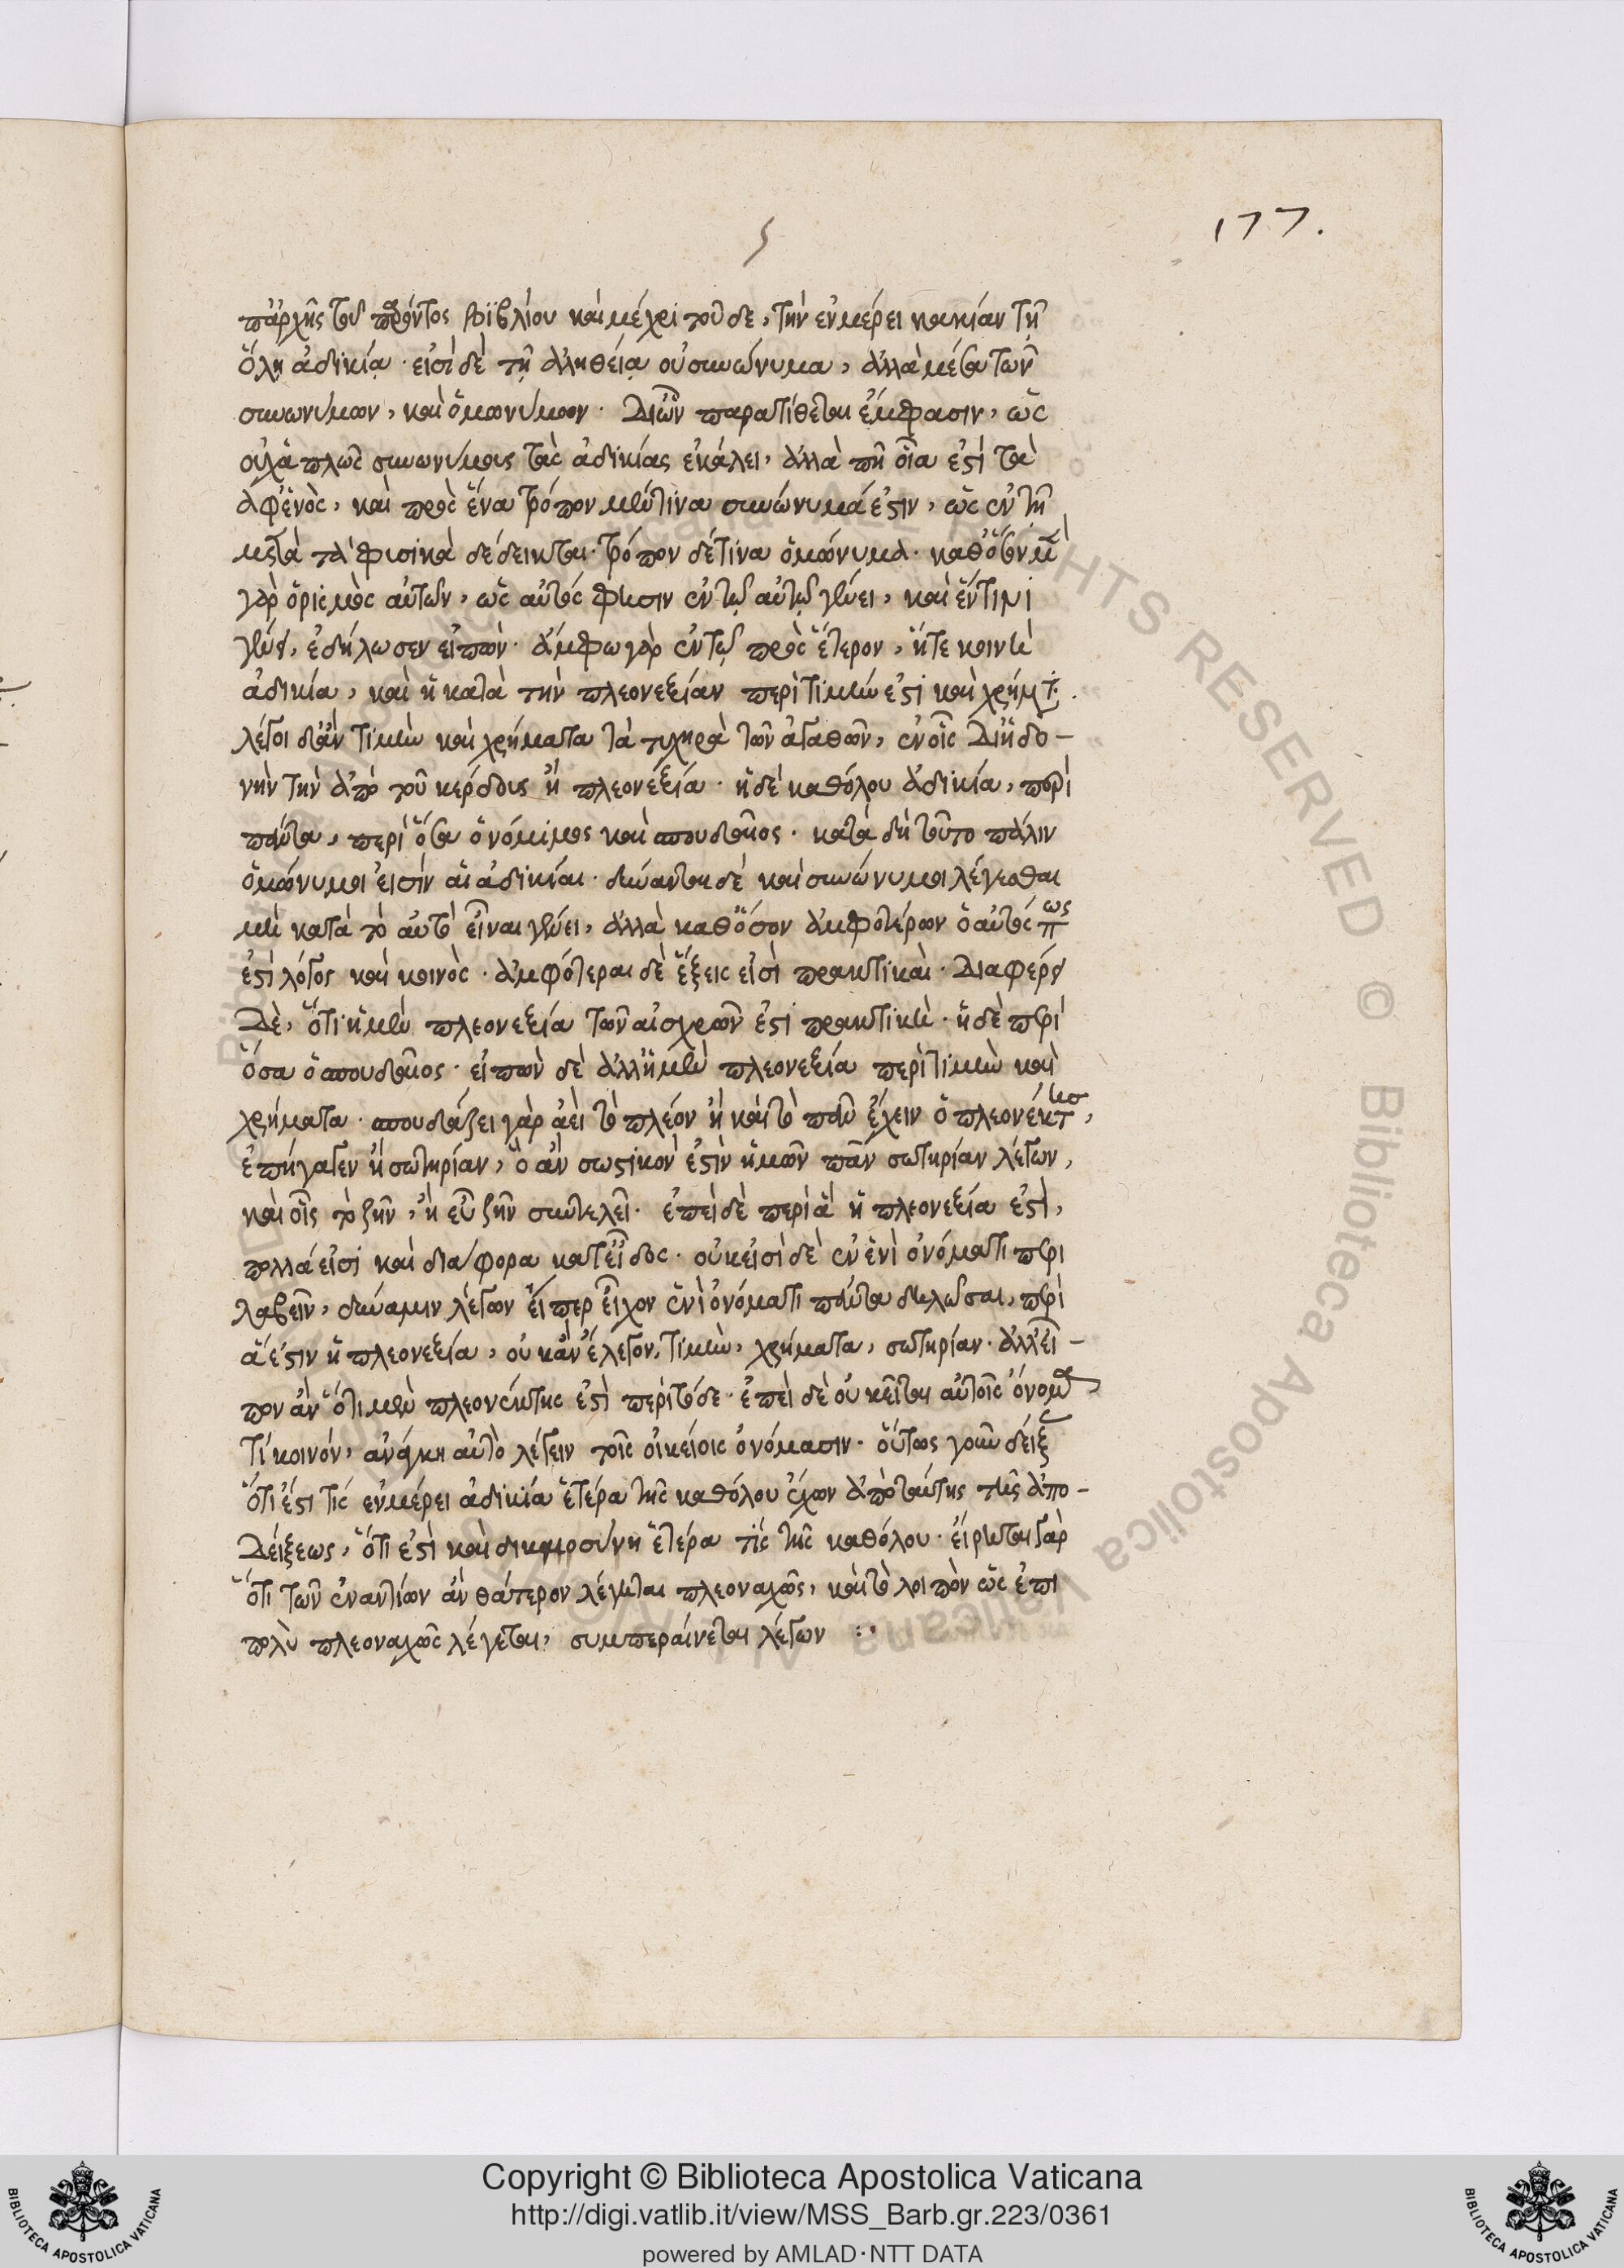 177.
ς
ἀπἀρχῆς τοῦ παρόντος βϊβλίου καὶ μέχρι τοῦ δε, τὴν ἐν μέρει κακίαν τῇ
ὅλῃ ἀδικίᾳ · εἰσὶ δὲ τῇ ἀληθείᾳ οὐ συνώνυμα, ἀλλὰ μέσα τῶν
συνωνύμων, καὶ ὁμωνύμων · Διὧν παρατίθεται ἔμφασιν, ὡς
οὐχἁπλῶς συνωνύμους τὰς ἀδικίας ἐκάλει, ἀλλὰ πῇ οἷα ἐστὶ τὰ
ἀφἑνὸς, καὶ πρὸς ἕνα τρόπον μέν τινα συνώνυμά ἐστιν, ὡς ἐν τῇ
μετὰ τὰ φυσικὰ δέδεικται · τρόπον δέ τινα ὁμώνυμα · καθὅσον μὲν
γὰρ ὁρισμὸς αὐτῶν, ὡς αὐτός φησιν ἐν τῷ αὐτῷ γένει, καὶ ἕν τινι
γένει, ἐδήλωσεν εἰπὼν · ἄμφω γὰρ ἐν τῷ πρὸς ἕτερον, ἥ τε κοινὴ
ἀδικία, καὶ ἡ κατὰ τὴν πλεονεξίαν περὶ τιμήν ἐστι καὶ χρήματα ·
λέγοι δἂν τιμὴν καὶ χρήματα τὰ τυχηρὰ τῶν ἀγαθῶν, ἐν οἷς Διἡδο-
νὴν τὴν ἀπὸ τοῦ κέρδους ἡ πλεονεξία · ἡ δὲ καθόλου ἀδικία, περὶ
πάντα, περὶ ὅσα ὁ νόμιμος καὶ σπουδαῖος · κατὰ δὴ τοῦτο πάλιν
ὁμώνυμοι εἰσὶν αἱ ἀδικίαι · δύνανται δὲ καὶ συνώνυμοι λέγεσθαι
μὴ κατὰ τὸ αὐτὸ εἶναι γένει, ἀλλὰ καθὅσον ἀμφοτέρων ὁ αὐτός πως
ἐστὶ λόγος καὶ κοινὸς · ἀμφότεραι δὲ ἕξεις εἰσὶ πρακτικαὶ · Διαφέρει
Δὲ, ὅτι ἡ μὲν πλεονεξία τῶν αἰσχρῶν ἐστι πρακτικὴ · ἡ δὲ περὶ
ὅσα ὁ σπουδαῖος · εἰπὼν δὲ ἀλλἡ μὲν πλεονεξία περὶ τιμὴν καὶ
χρήματα · σπουδάζει γὰρ ἀεὶ τὸ πλέον ἢ καὶ τὸ πᾶν ἔχειν ὁ πλεονέκτης,
ἐπήγαγεν ἢ σωτηρίαν, ὃ ἂν σωστικὸν ἐστὶν ἡμῶν πᾶν σωτηρίαν λέγων,
καὶ οἷς τὸ ζῆν, ἢ εὖ ζῆν συντελεῖ · ἐπεὶ δὲ περὶ ἃ ἡ πλεονεξία ἐστὶ,
πολλά εἰσι καὶ διάφορα κατεἶδος · οὐκ εἰσὶ δὲ ἐν ἑνὶ ὀνόματι περι
λαβεῖν, δύναμιν λέγων εἴπερ εἶχον ἑνὶ ὀνόματι πάντα δηλῶσαι, περὶ
ἅ ἐστιν ἡ πλεονεξία, οὐκ ἂν ἔλεγον, τιμὴν, χρήματα, σωτηρίαν · ἀλλεἶ-
πον ἂν ὅτι μὲν πλεονέκτης ἐστὶ περὶ τόδε · ἐπεὶ δὲ οὐ κεῖται αὐτοῖς ὄνομά
τι κοινόν, ἀνάγκη αὐτὸ λέγειν τοῖς οἰκείοις ὀνόμασιν · οὕτως γοῦν δείξας
ὅτι ἐστί τις ἐν μέρει ἀδικία ἑτέρα τῆς καθόλου ἔχων ἀπὸ ταύτης τῆς ἀπο-
Δείξεως, ὅτι ἐστὶ καὶ δικαιοσύνη ἑτέρα τὶς τῆς καθόλου · εἴρηται γὰρ
ὅτι τῶν ἐναντίων ἂν θάτερον λέγηται πλεοναχῶς, καὶ τὸ λοιπὸν ὡς ἐπι
πολὺ πλεοναχῶς λέγεται, συμπεραίνεται λέγων :·
Copyright © Biblioteca Apostolica Vaticana
http://digi.vatlib.it/view/MSS_Barb.gr.223/0361
powered by AMLAD·NTT DATA
BIBLIOTECA APOSTOLICA VATICANA
BIBLIOTECA APOSTOLICA VATICANA